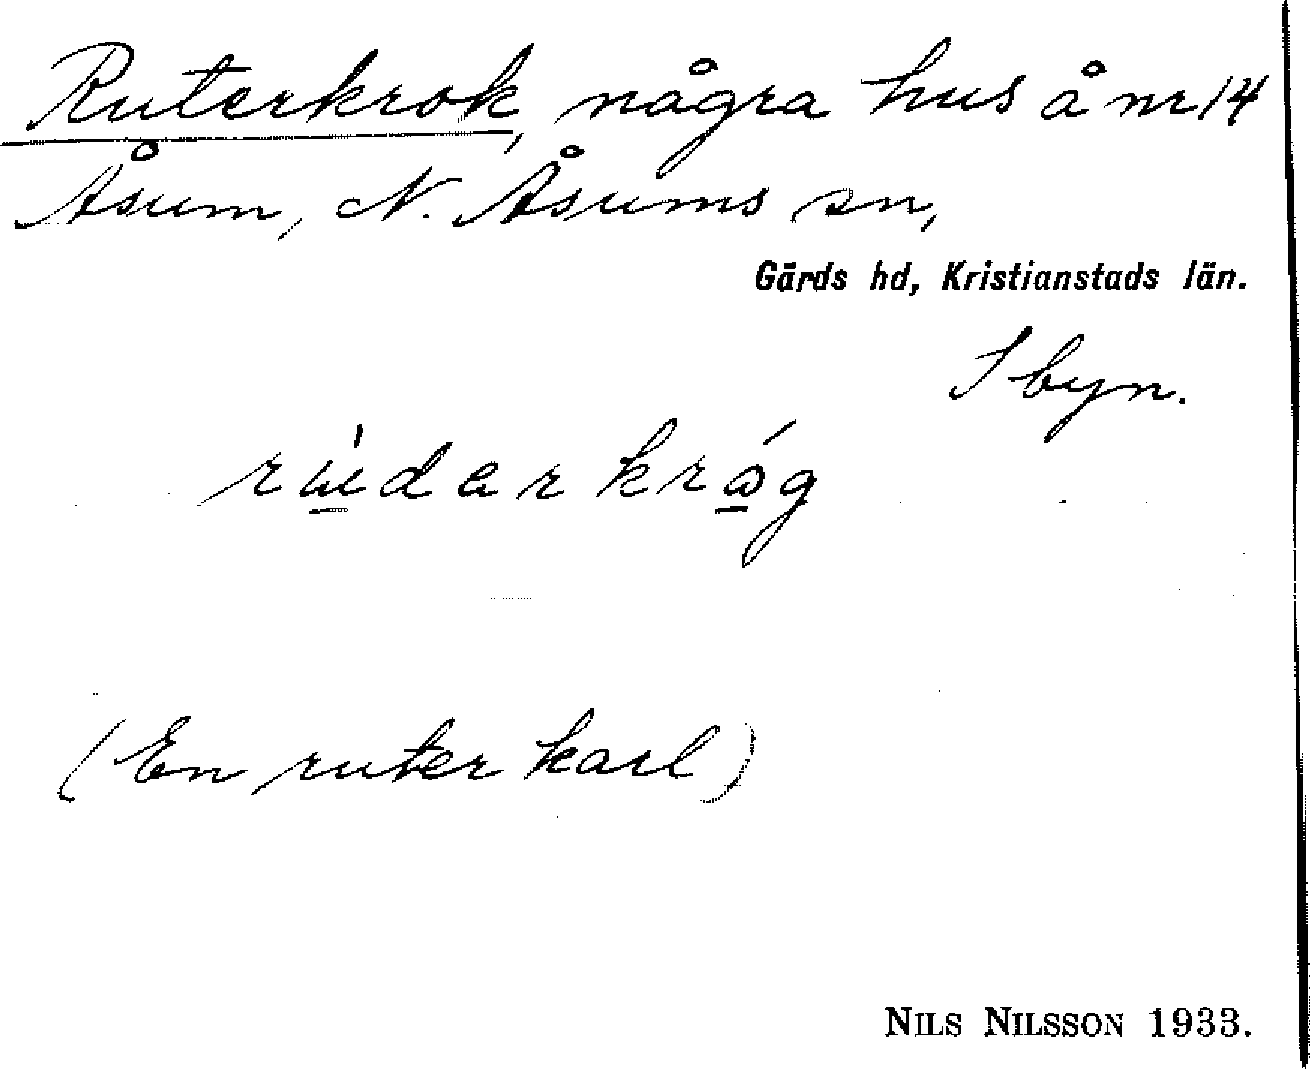 Ruterkrok, några hus å nr 14
Åsum, N. Åsums sn,
Gärds hd, Kristianstads län.
I byn.
rɯ̱́darkrǫ́g
(En ruter karl)
NILS NILSSON 1933.